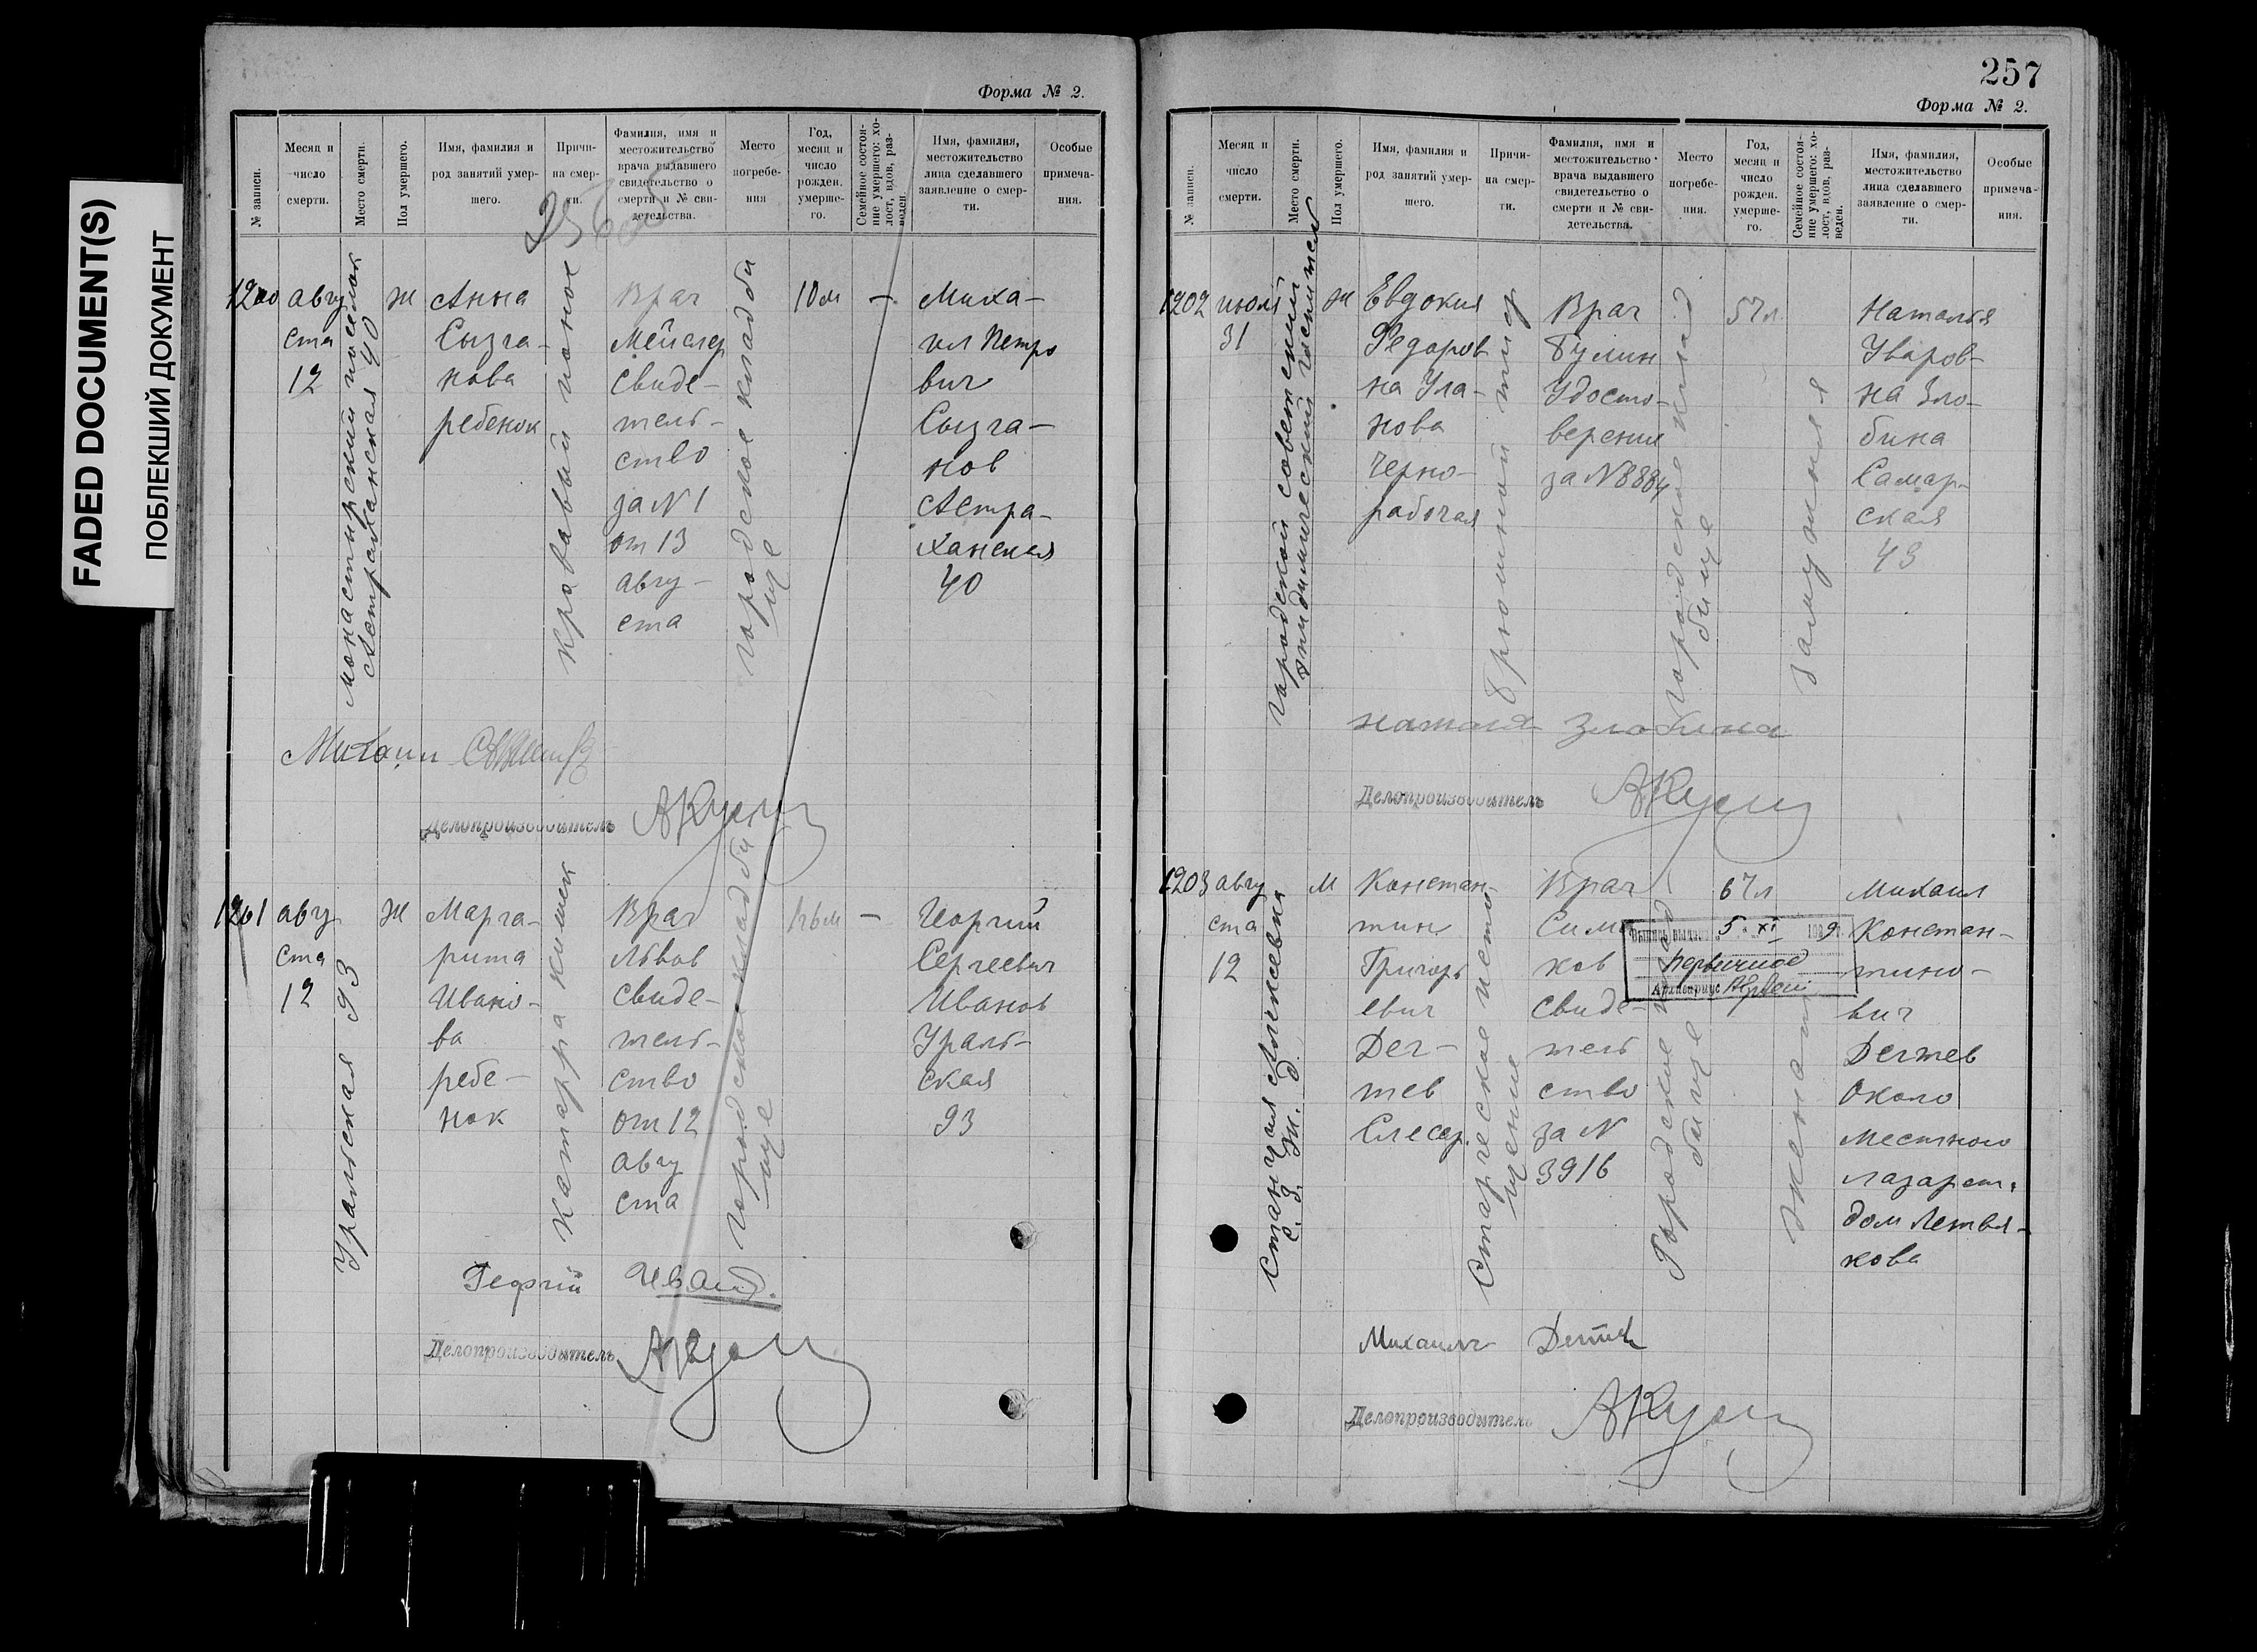 FADED DOCUMENT(S)
ПОБЛЕКШИЙ ДОКУМЕНТ
Форма № 2.
№ записи.
Месяц и
число
смерти.
Место смерти.
Пол умершего.
Имя, фамилия и
род занятий умер-
шего.
Причи-
на смер-
ти.
Фамилия, имя и
местожительство
врача выдавшего
свидетельство о
смерти и № сви-
детельства.
Место
погребе-
ния
Год,
месяц и
число
рожден.
умерше-
го.
Семейное состоя-
ние умершего: хо-
лост, вдов, раз-
веден.
Имя, фамилия,
местожительство
лица сделавшего
заявление о смер-
ти.
Особые
примеча-
ния.
1200
авгу
ста
12
Монастырский поселок
Астраханская 40
ж
Анна
Сызга-
нова
ребенок
кровавый понос
Врач
Мейслер
свиде-
тель-
ство
за N 1
от 13
авгу-
ста
городское кладби
ще
10 м
—
Миха-
ил Петро
вич
Сызга-
нов
Астра-
ханская
40
Михаил
Делопроизводитель
1201
авгу
ста
12
Уральская 93
ж
Марга-
рита
Ивано-
ва
ребе-
нок
катарра кишек
Врач
Львов
свиде-
тель-
ство
от 12
авгу
ста
городское кладби
ще
—
Георгий
Сергеевич
Иванов
Ураль-
ская
93
Георгий
Делопроизводитель
257
Форма № 2.
№ записи.
Месяц и
число
смерти.
Место смерти.
Пол умершего.
Имя, фамилия и
род занятий умер-
шего.
Причи-
на смер-
ти.
Фамилия, имя и
местожительство
врача выдавшего
свидетельство о
смерти и № сви-
детельства.
Место
погребе-
ния.
Год,
месяц и
число
рожден.
умерше-
го.
Семейное состоя-
ние умершего: хо-
лост, вдов, раз-
веден.
Имя, фамилия,
местожительство
лица сделавшего
заявление о смер-
ти.
Особые
примеча-
ния.
1202
июля
31
городской советский
ж
Евдокия
Федоров
на Ула-
нова
Черно-
рабочая
Брюшной тиф
Врач
Булин
Удосто-
верение
за N 8884
городское клад
бище
57 л
Замужняя
Наталья
Уваров-
на Зло-
бина
Самар-
ская
43
Наталя Злобина
Делопроизводитель
1203
авгу
ста
12
Станция Алексеевка
С. З. Ж. д.
м
Констан-
тин
Григорь
евич
Дег-
тев
Слесар.
Старческое исто
щение
Врач
Сима
ков
свиде-
тель
ство
за N
3916
Городское клад
бище
67 л
5 XI 9
первичное
Архивариус
женат
Михаил
Констан-
тино-
вич
Дегтев
Около
местного
лазарет.
дом Летвя-
кова
Михаил
Делопроизводитель